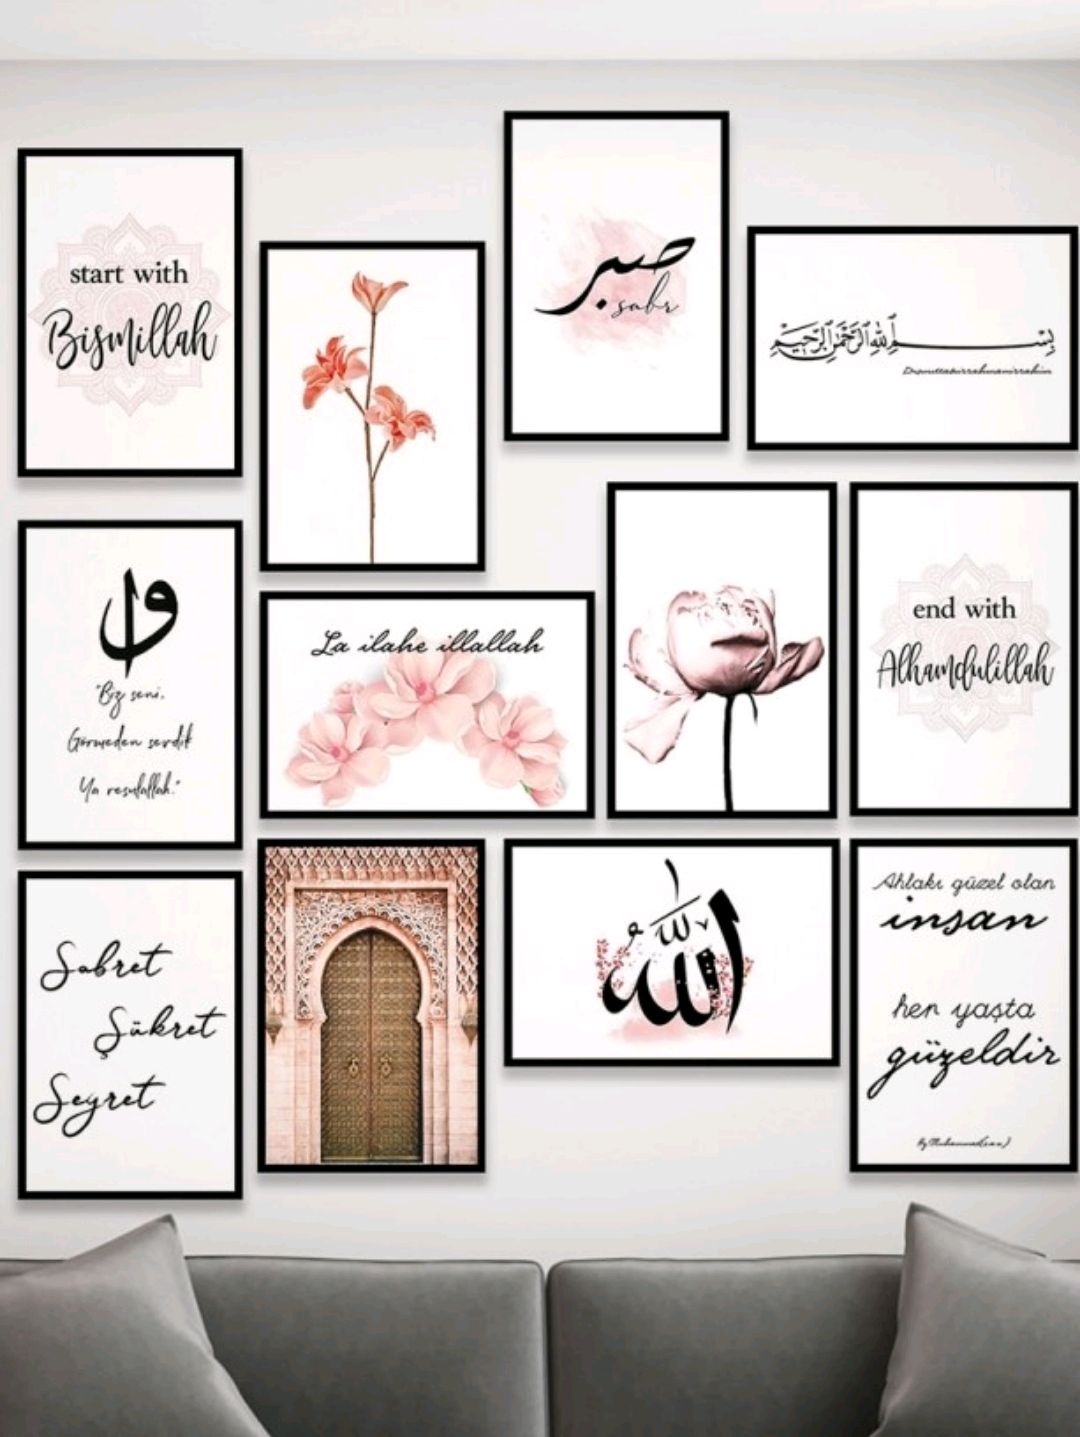 start with
Bismillah
صبر
sabr
بِسْــــمِ اللهِ الرَّحْمٰنِ الرَّحِيمِ
"Biz seni,
Görmeden sevdik
Ya resulallah."
La ilahe illallah
end with
Alhamdulillah
Sabret
Şükret
Seyret
الله
Ahlakı güzel olan
insan
her yaşta
güzeldir